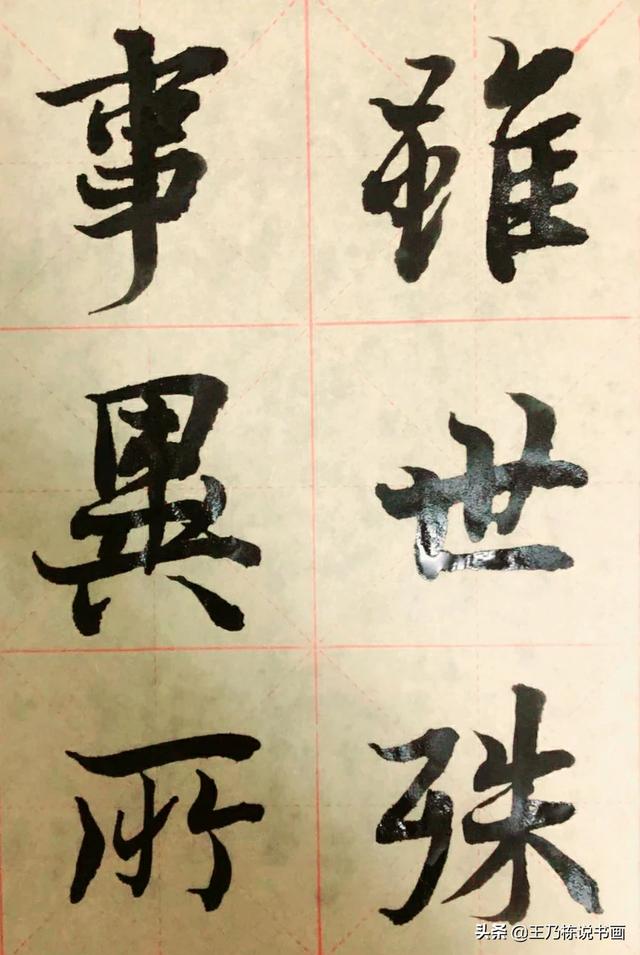 雖世殊
事異所
头条 @王乃栋说书画